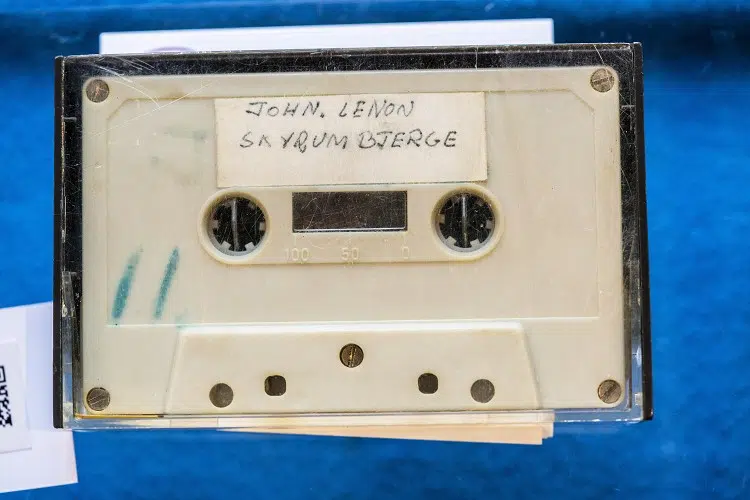 JOHN. LENON
SKYRUM BJERGE
100 50 0